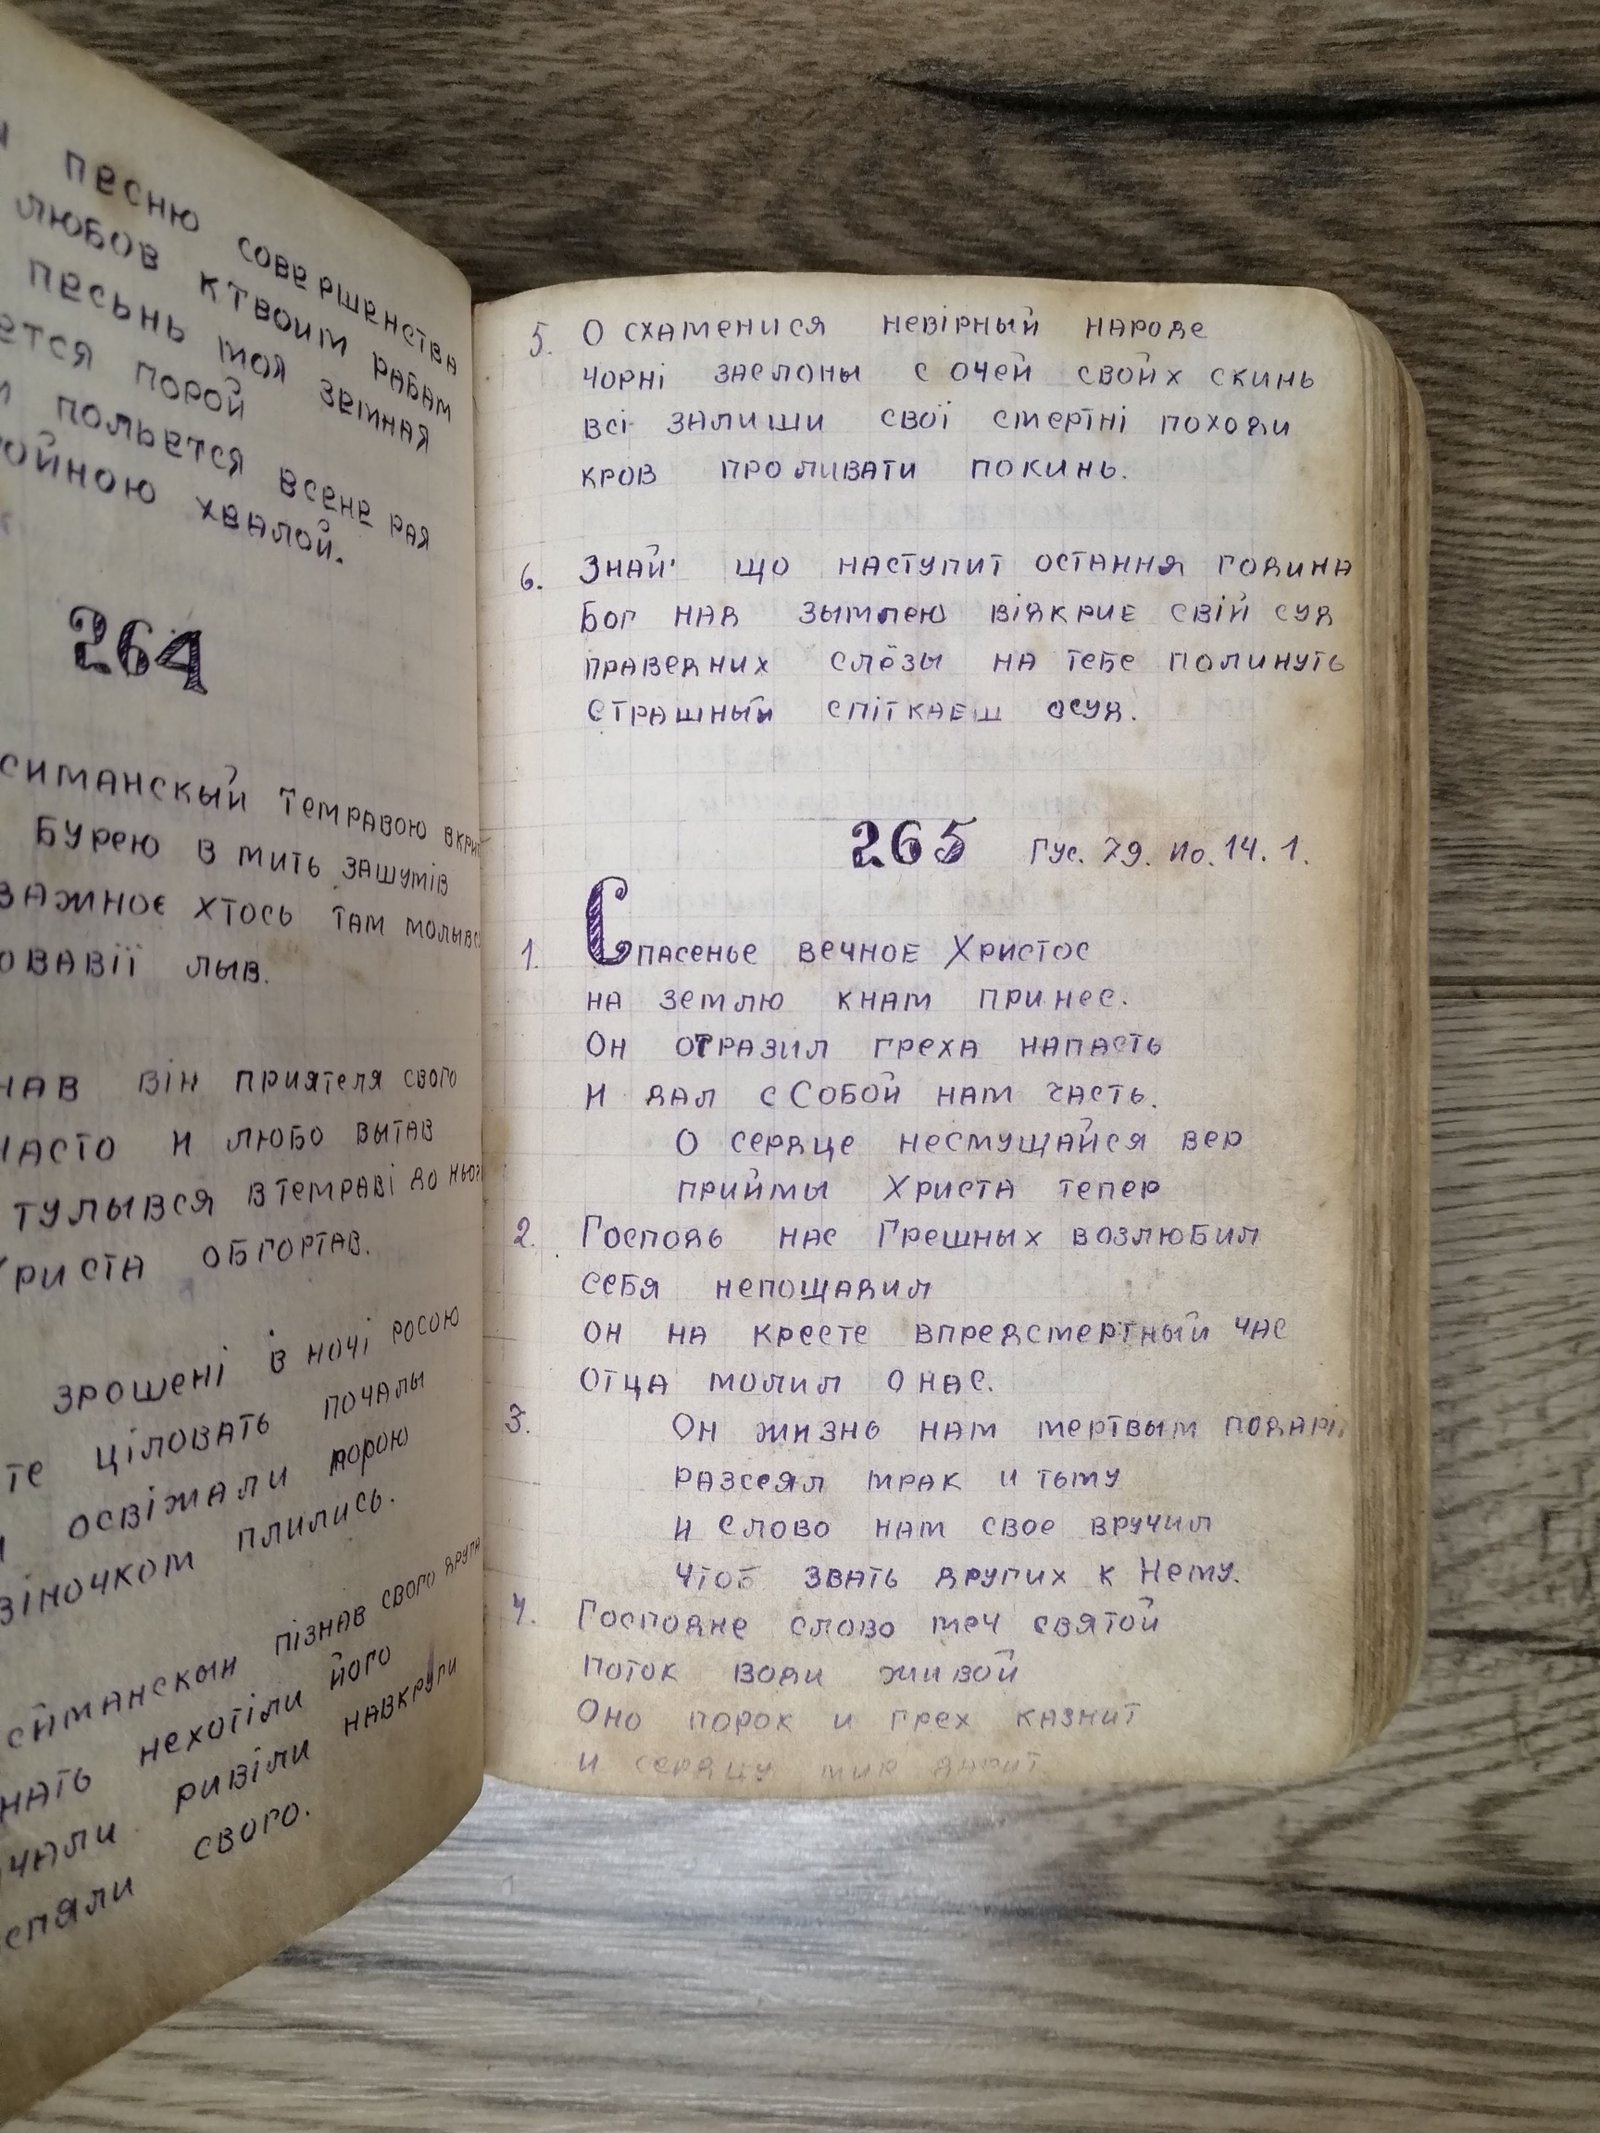 песню совершенства
любов ктвоим рабам
песьнь моя земная
ется порой
польется всене рая
ойною хвалой.
264
симанскый темравою
Бурею в мить зашумів
важноє хтось там
ововавії лыв.
нав він приятеля свого
часто и любо вытав
тулывся втемраві до
Христа обгортав.
зрошені в ночі росою
те ціловать почалы
освіжали порою
віночком плились.
симанскын пізнав свого друга
нать нехотіли його
чали ривіли навкруги
спяли свого.
5. О схаменися невірный народе
чорні заслоны с очей свойх скинь
всі залиши свої смертні походи
кров проливати покинь.
6. Знай що наступит остання година
Бог над зымлею відкриє свій суд
праведних слёзы на тебе полинуть
страшный спіткаєш осуд.
265 Гус. 79. Ио. 14. 1.
1. Спасенье вечное Христос
на землю кнам принес.
Он отразил греха напасть
и дал сСобой нам часть.
О сердце несмущайся вер
приймы Христа тепер
2. Господь нас Грешных возлюбил
себя непощадил
он на кресте впредсмертный час
отца молил онас.
3. Он жизнь нам мертвым
разсеял мрак и тьму
и слово нам свое вручил
чтоб звать других к Нему.
4. Господне слово меч святой
поток води живой
Оно порок и грех казнит
и сердцу мир дарит